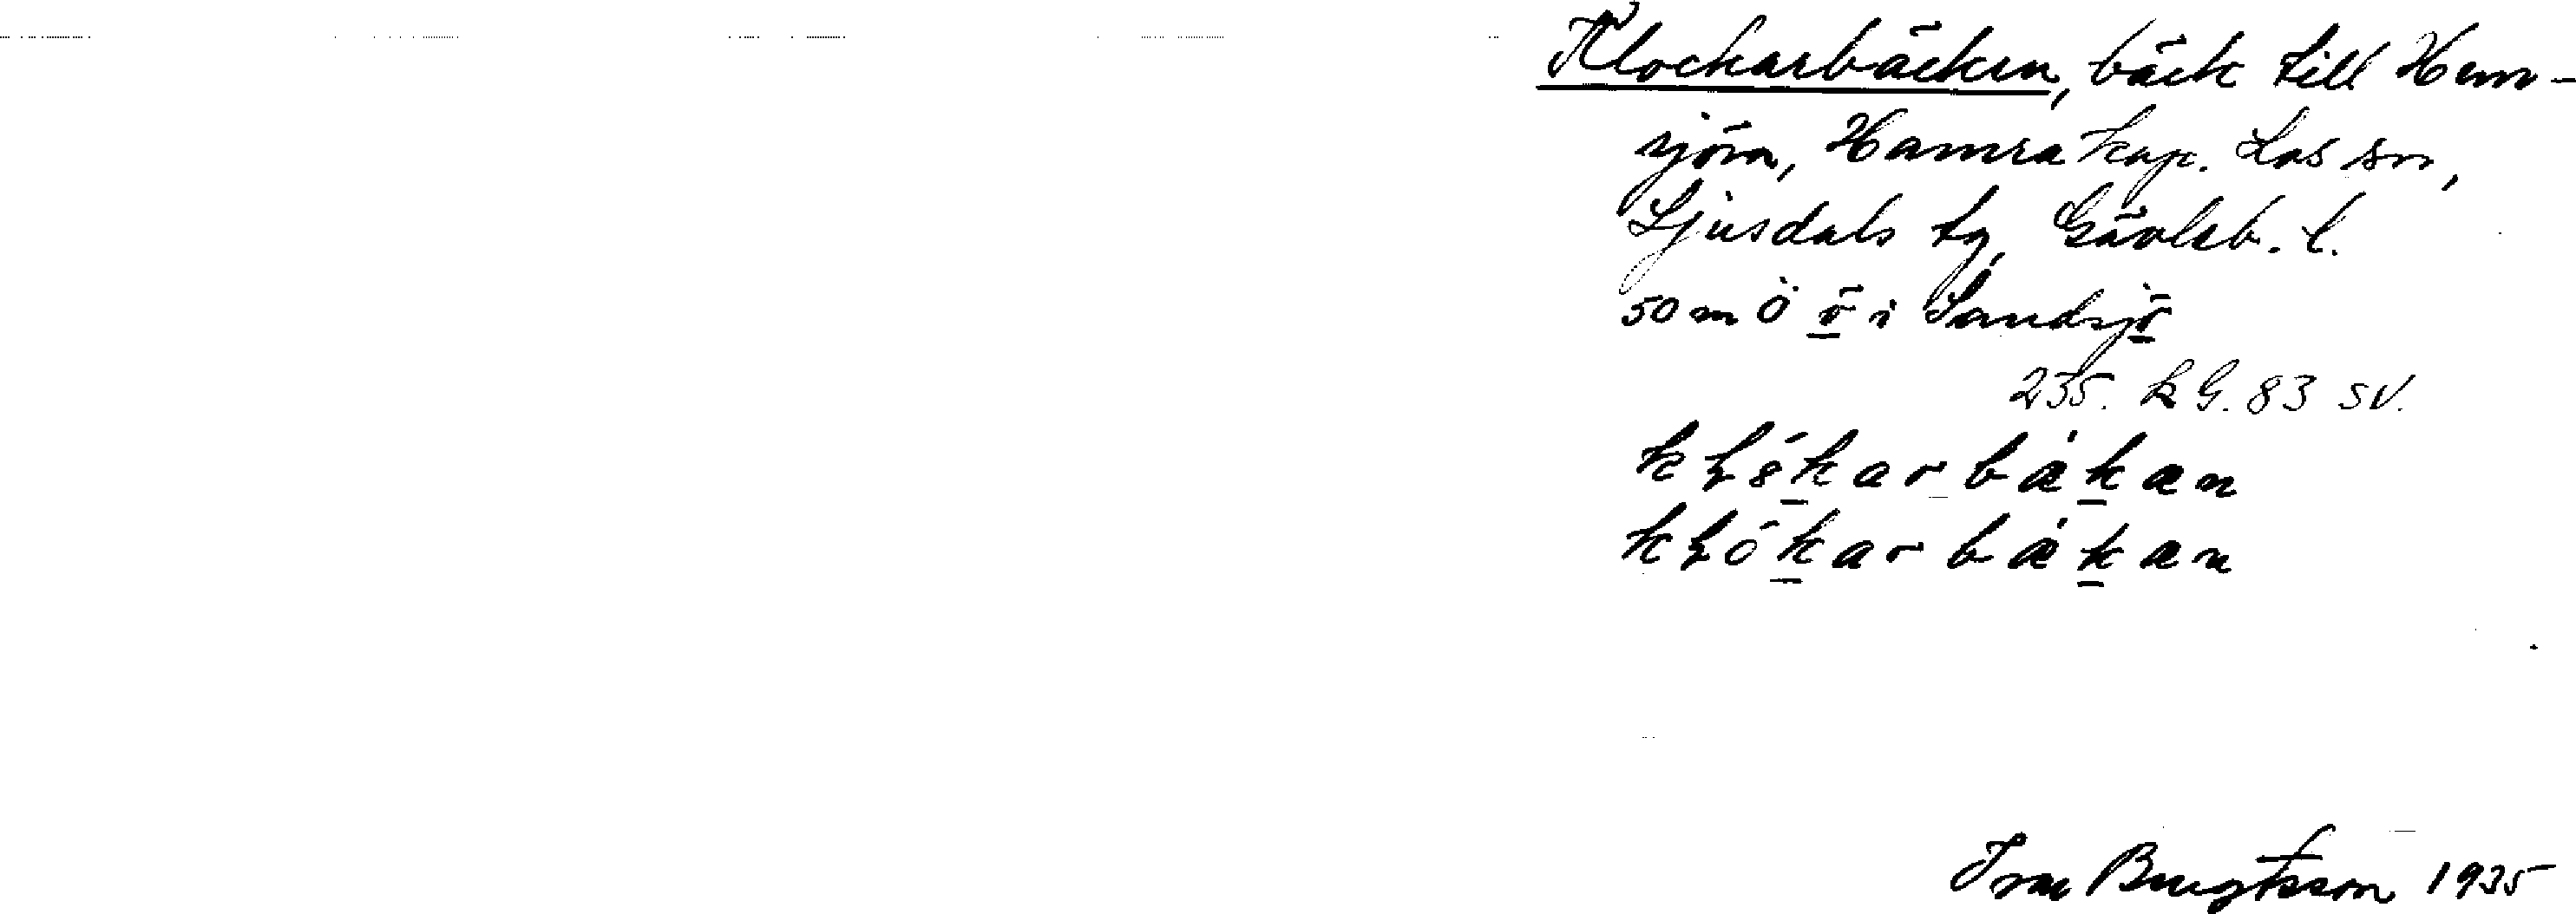 Klockarbäcken, bäck till Hem-
sjön, Hamra kap. Los sn,
Ljusdals tg, Gävleb. l.
50 m Ö ö i Sandsjö
235. k G. 83 SV.
kɽȯkar bækæn
kɽókar bækæn
Bengtsson 1935